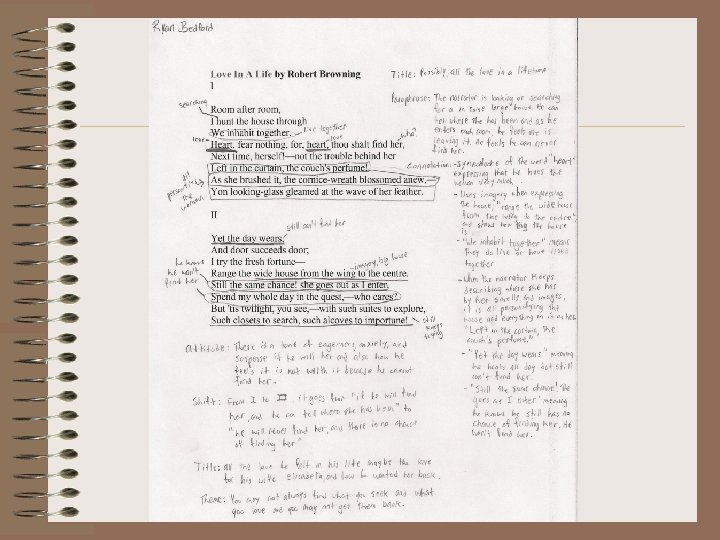 Ryan Bedford
Love In A Life by Robert Browning
I
Room after room,
I hunt the house through
We inhabit together.
Heart, fear nothing, for, heart, thou shalt find her,
Next time, herself!—not the trouble behind her
Left in the curtain, the couch's perfume!
As she brushed it, the cornice-wreath blossomed anew,—
Yon looking-glass gleamed at the wave of her feather.
II
Yet the day wears,
And door succeeds door;
I try the fresh fortune—
Range the wide house from the wing to the centre.
Still the same chance! she goes out as I enter.
Spend my whole day in the quest,—who cares?
But 'tis twilight, you see,—with such suites to explore,
Such closets to search, such alcoves to importune!
searching
live together
love
love
who?
all
personifying
the
unknown
still can't find her
he knows
he won't
find her
imagery, big house
still
keeps
trying
Title: Possibly, all the love in a lifetime
Paraphrase: The narrator is looking or searching
for a in some large house. He can
tell where she has been and as he
enters each room, he feels she is
leaving it. He feels he can never
find her.
Connotation: - Synecdoche of the word "heart"
expressing that he loves the
very much
- Uses imagery when expressing
the house, "range the wide house
from the wing to the centre"
and shows how big the house
is
- "We inhabit together" means
they do live or have lived
together
- When the narrator keeps
describing where she has
by her smells and images,
it is all personifying the
house and everything in
"Left in the curtain, the
couch's perfume."
- "Yet the day wears" meaning
he all day but still
can't find her.
- "Still the same chance! She
goes as I enter" meaning
he knows he still has no
chance of finding her. He
won't find her.
Attitude: There is a tone of eagerness, anxiety, and
suspense if he will her and also how he
feels it is not worth it because he cannot
find her.
Shift: From I to II it goes from "if he will find
her, and he can tell where she has been" to
"he will never find her, and there is no chance
of finding her"
Title: All the love he felt in his life maybe the love
for his wife Elizabeth, and how he wanted her back.
Theme: You may not always find what you seek and what
you love and you may not get them back.